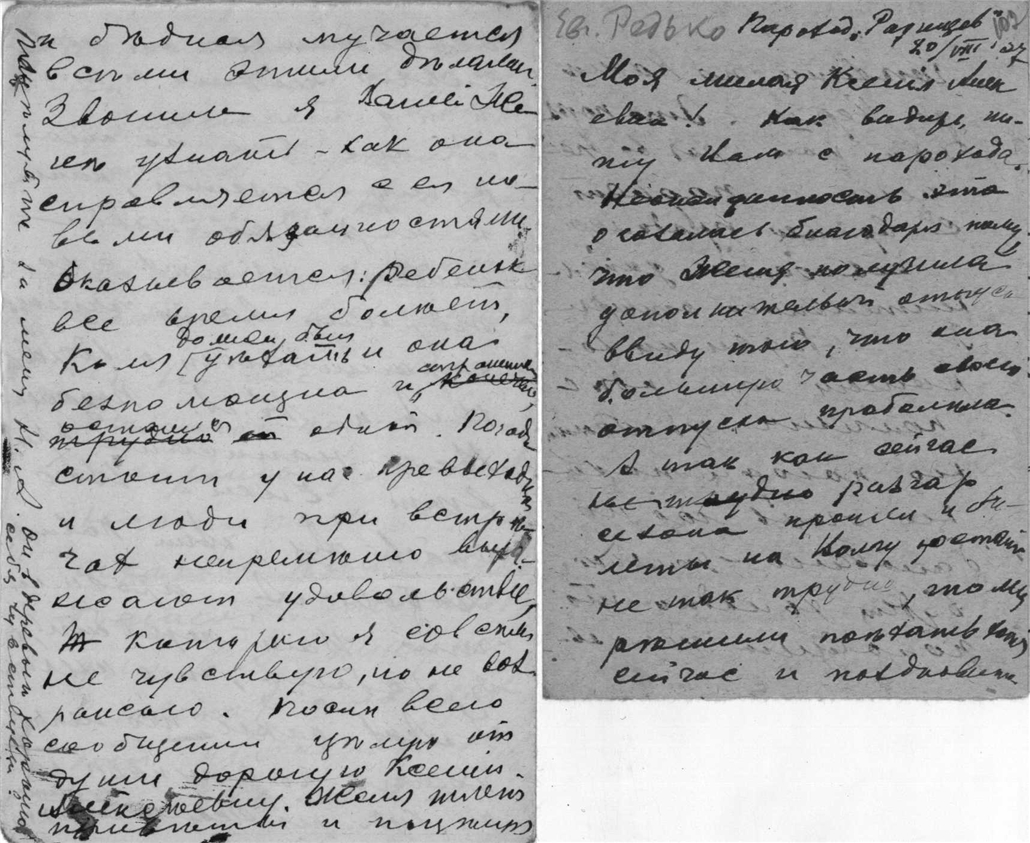 и бѣдная мучается
всѣми этими дѣлами
Звонила я
узнать – как она
справляется с ея но-
выми обязанностями
Оказывается: ребенок
все время болѣет,
Коля должен был уѣхать и она
безпомощна и страшно
остаться одной. Погода
стоит у нас превосходная
и люди при встрѣ-
чах непремѣнно выра-
жают удовольствие,
которого я совсѣм
не чувствую, но не воз-
ражаю. Послѣ всего
сообщения цѣлую от
души дорогую Ксению
Алексѣевну. Женя шлет
привѣты и поцѣлуи
Поцѣлуйте за меня Н. А. Он в деревне хорошо
себя чувствует
Ев. Редько
Пароход „Радищев“
20/VIII 27
Моя милая Ксения Алек
сѣевна! Как видите, пи-
шу Вам с парохода.
Неожиданность эта
оказалась благодаря тому,
что Женя получила
дополнительный отпуск
ввиду того, что она
большую часть своего
отпуска проболѣла.
А так как сейчас
разгар
сезона прошел и би-
леты на Волгу достать
не так трудно, то мы
рѣшили поѣхать хотя
сейчас и поздновато